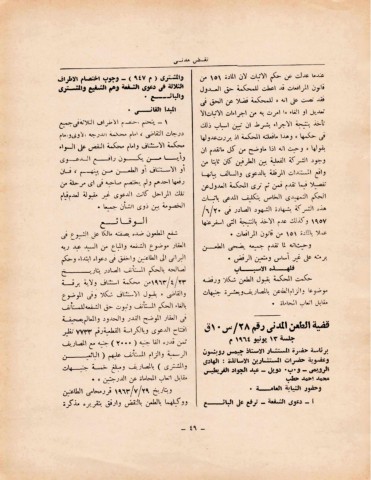 نقض مدني
عندما عدلت عن حكم الاثبات لان المادة ١٥١ من
قانون المرافعات قد اعطت للمحكمة حق العدول
فقد نصت على انه « للمحكمة فضلا عن الحق فى
تعديل او الغاء ما امرت به من اجراءات الاثبات الا
تأخذ بنتيجة الاجراء بشرط ان تبين اسباب ذلك
فى حكمها » وهذا مافعلته المحكمة اذ بررت عدولها
بقولها « وبحيث انه اذا ماوضح من كل ماتقدم ان
وجود الشركة الفعلية بين الطرفين كان ثابتا من
واقع المستندات المرفقة بالدعوى والسالف بيانها
تفصيلا فيما تقدم فمن ثم ترى المحكمة العدول عن
الحكم التمهيدى الخاص بتكليف المدعى باثبات
هذه الشركة بشهادة الشهود الصادر فى ٣٠ / ٦ /
١٩٥٧ وعدم الاخذ بالنتيجة التى اسفر عنها
عملا بالمادة ١٥١ من قانون المرافعات »
وحيث انه لما تقدم جميعه يضحى الطعن
برمته على غير أساس ومتعين الرفض .
فلهذه الاسباب
حكمت المحكمة بقبول الطعن شكلا ورفضه
موضوعا والزام الطاعن بالمصاريف وعشرة جنيهات
مقابل اتعاب المحاماة .
قضية الطعن المدنى رقم ٢٨ / س ١٠ ق
جلسة ١٣ يونيو ١٩٦٤ م
برئاسة حضرة المستشار الاستاذ جيمس روبنسون
وعضوية حضرات المستشارين الاساتذة : الهادى
الرويمى - و٠ب٠ دويل - عبد الجواد الفريطيس
محمد احمد حطب
وحضور النيابة العامة .
١ - دعوى الشفعة - ترفع على البائع
والمشترى ( م ٩٤٧ ) - وجوب اختصام الاطراف
الثلاثة فى دعوى الشفعة وهم الشفيع والمشترى
والبائع .
المبدأ القانونى
١ - يتحتم اختصام الاطراف الثلاثة فى جميع
درجات التقاضى امام محكمة الدرجة الاولى وامام
محكمة الاستئناف وامام محكمة النقض على السواء
وأيا من يكون رافع الدعوى
أو الاستئناف أو الطعن من بينهم فان
رفعها احدهم ولم يختصم صاحبيه فى اى مرحلة من
تلك المراحل كانت الدعوى غير مقبولة لعدم قيام
الخصومة بين ذوى الشأن جميعا .
الوقائع
شفع المطعون ضده بصفته مالكا على الشيوع فى
العقار موضوع الشفعة والمباع من السيد عبد ربه
البرانى الى الطاعنين وأخفق فى دعواه ابتداء، وحكم
لصالحه بالحكم المستأنف الصادر بتاريخ
٢٣/٤/١٩٦٣ من محكمة استئناف ولاية برقة
والقاضى « بقبول الاستئناف شكلا وفى الموضوع
بالغاء الحكم المستأنف وثبوت حق الشفعة للمستأنف
فى العقار الموضح القدر والحدود والمعالم بصحيفة
افتتاح الدعوى وبالكراسة القطعية رقم ٧٧٢٣ نظير
ثمن قدره الفا جنيه ( ٢٠٠٠ ) جنيه مع المصاريف
والرسمية والزام المستأنف عليهم ( البائعين
والمشترى ) بالمصاريف ومبلغ خمسة جنيهات
مقابل اتعاب المحاماة عن الدرجتين »
وبتاريخ ٢٩/٧/١٩٦٣ قرر محامى الطاعنين
ووكيلهما بالطعن بالنقض وارفق بتقريره مذكرة
- ٤٦ -